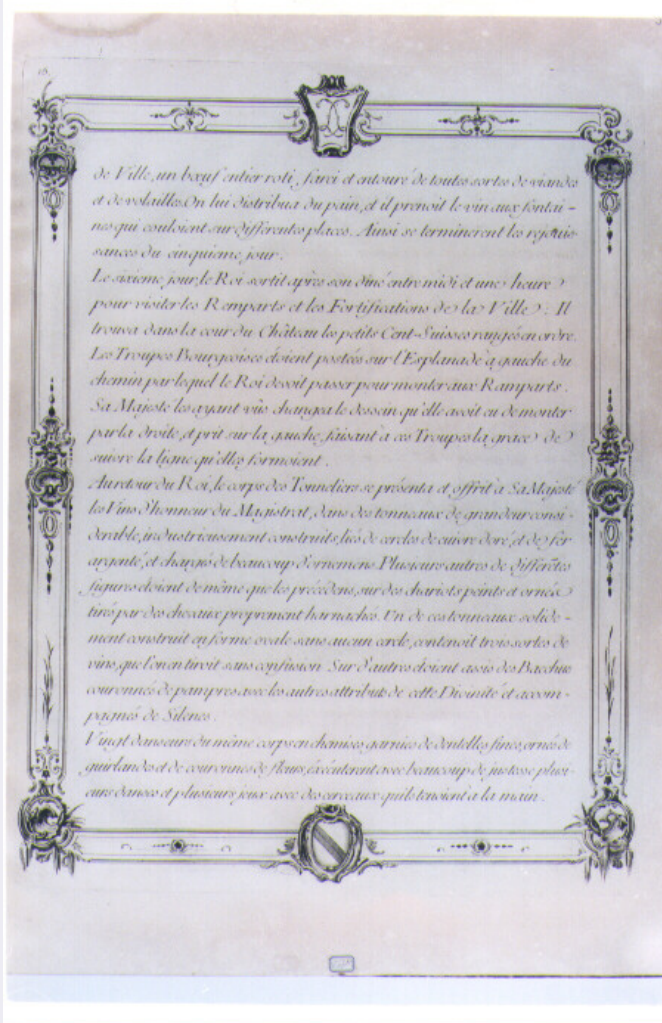 16.
de Ville, un bœuf entier roti, farci et entouré de toutes sortes de viandes
et de volailles. On lui distribua du pain, et il prenoit le vin aux fontai-
nes qui couloient sur différentes places. Ainsi se terminèrent les rejouis-
sances du cinquieme jour.
Le sixieme jour, le Roi sortit après son diné entre midi et une heure
pour visiter les Remparts et les Fortifications de la Ville. Il
trouva dans la cour du Château les petits Cent-Suisses rangés en ordre.
Les Troupes Bourgeoises étoient postées sur l'Esplanade à gauche du
chemin par lequel le Roi devoit passer pour monter aux Remparts.
Sa Majesté les ayant vûs changea le dessein qu'elle avoit eu de monter
par la droite, et prit sur la gauche, faisant à ces Troupes la grace de
suivre la ligne qu'elles formoient.
Au retour du Roi, le corps des Tonneliers se présenta et offrit à Sa Majesté
les Vins d'honneur du Magistrat, dans des tonneaux de grandeur consi-
derable, industrieusement construits, liés de cercles de cuivre doré, et de fer
argenté, et chargés de beaucoup d'ornemens. Plusieurs autres de differêtes
figures étoient de même que les précédens, sur des chariots peints et ornés
tirés par des chevaux proprement harnachés. Un de ces tonneaux solide-
ment construit en forme ovale sans aucun cercle, contenoit trois sortes de
vins, que l'on en tiroit sans confusion. Sur d'autres étoient assis des Bacchus
couronnés de pampres avec les autres attributs de cette Divinité et accom-
pagnés de Silenes.
Vingt danseurs du même corps en chemises garnies de dentelles fines, ornés de
guirlandes et de couronnes de fleurs, éxécuterent avec beaucoup de justesse plusi-
eurs danses et plusieurs jeux avec des cerceaux qu'ils tenoient à la main.